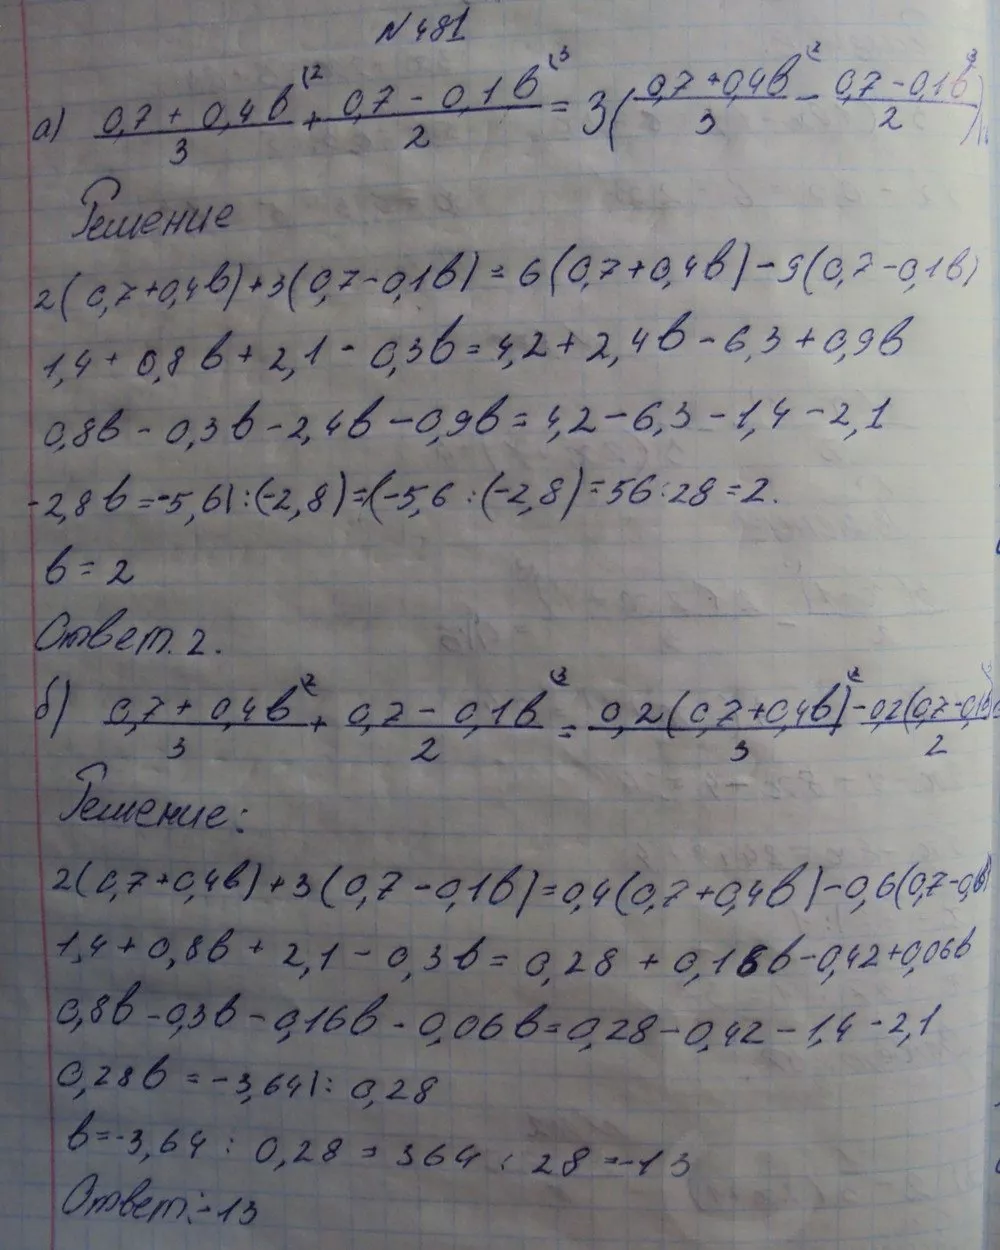 N 481
а) (0,7 + 0,4в)/3 (2 + (0,7 - 0,1в)/2 (3 = 3((0,7 + 0,4в)/3 (2 - (0,7 - 0,1в)/2 (3)
Решение
2(0,7+0,4в)+3(0,7-0,1в)=6(0,7+0,4в)-9(0,7-0,1в)
1,4+0,8в+2,1-0,3в=4,2+2,4в-6,3+0,9в
0,8в-0,3в-2,4в-0,9в=4,2-6,3-1,4-2,1
-2,8в=-5,6|:(-2,8)=(-5,6:(-2,8)=56:28=2.
в=2
Ответ. 2.
б) (0,7 + 0,4в)/3 (2 + (0,7 - 0,1в)/2 (3 = 0,2(0,7+0,4в)/3 (2 - 0,2(0,7-0,1в)/2
Решение:
2(0,7+0,4в)+3(0,7-0,1в)=0,4(0,7+0,4в)-0,6(0,7-0,1в)
1,4+0,8в+2,1-0,3в=0,28+0,16в-0,42+0,06в
0,8в-0,3в-0,16в-0,06в=0,28-0,42-1,4-2,1
0,28в=-3,64|:0,28
в=-3,64:0,28=364:28=-13
Ответ:-13